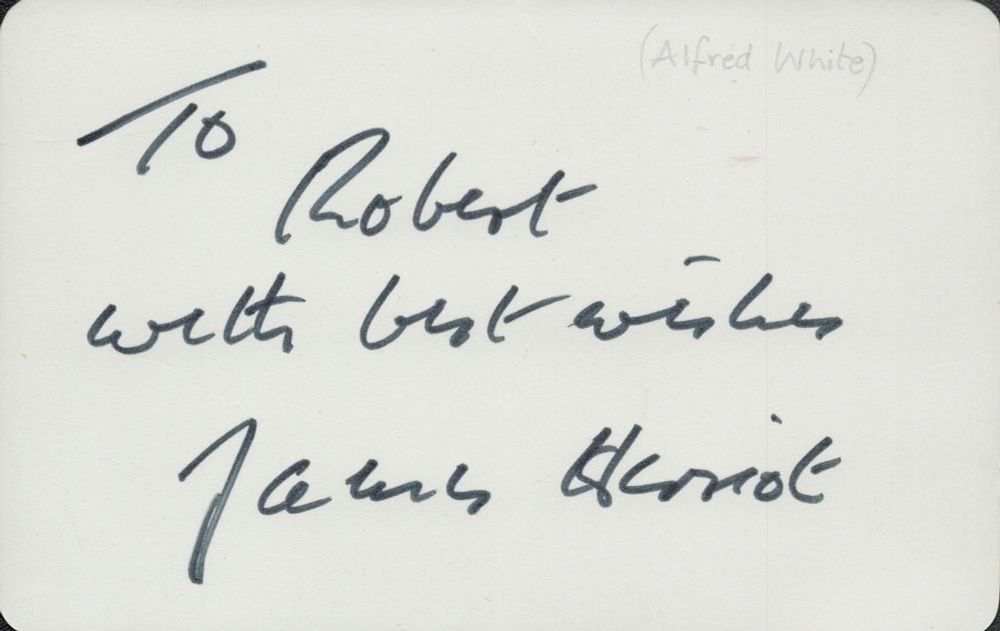 (Alfred White)
To
Robert
with best wishes
James Herriot